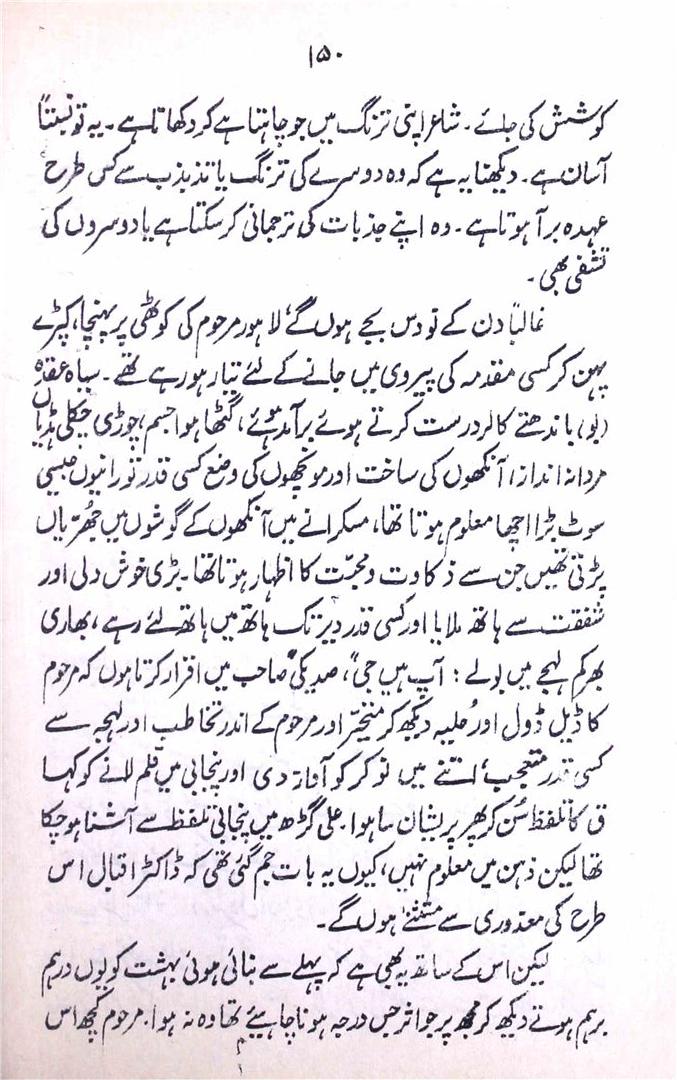 ۱۵۰
کوشش کی جائے۔ شاعر اپنی ترنگ میں جو چاہتا ہے کر دکھاتا ہے۔ یہ تو نسبتاً
آسان ہے۔ دیکھنا یہ ہے کہ وہ دوسرے کی ترنگ یا تذبذب سے کس طرح
عہدہ برآ ہوتا ہے۔ وہ اپنے جذبات کی ترجمانی کر سکتا ہے یا دوسروں کی
تشفی بھی۔
غالباً دن کے نو دس بجے ہوں گے، لاہور مرحوم کی کوٹھی پر پہنچا، کپڑے
پہن کر کسی مقدمہ کی پیروی میں جانے کے لئے تیار ہو رہے تھے۔ سیاہ عقدہ
(بو) باندھتے کالر درست کرتے ہوئے برآمد ہوئے، گٹھا ہوا جسم، چوڑی چکلی ہڈیاں
مردانہ انداز، آنکھوں کی ساخت اور مونچھوں کی وضع کسی قدر تورانیوں جیسی
سوٹ بڑا اچھا معلوم ہوتا تھا، مسکرانے میں آنکھوں کے گوشوں میں جھریاں
پڑتی تھیں جن سے ذکاوت و محبّت کا اظہار ہوتا تھا۔ بڑی خوش دلی اور
شفقت سے ہاتھ ملایا اور کسی قدر دیر تک ہاتھ میں ہاتھ لئے رہے، بھاری
بھرکم لہجے میں بولے: آپ ہیں جی"، صدیکی" صاحب میں اقرار کرتا ہوں کہ مرحوم
کا ڈیل ڈول اور حُلیہ دیکھ کر متحیّر اور مرحوم کے اندر تخاطب اور لہجہ سے
کسی قدر متعجب، اتنے میں نوکر کو آواز دی اور پنجابی میں قلم لانے کو کہا
ق کا تلفظ سُن کر پھر پریشان سا ہوا۔ علی گڑھ میں پنجابی تلفظ سے آشنا ہو چکا
تھا لیکن ذہن میں معلوم نہیں، کیوں یہ بات جم گئی تھی کہ ڈاکٹر اقبال اس
طرح کی معذوری سے مستثنےٰ ہوں گے۔
لیکن اس کے ساتھ یہ بھی ہے کہ پہلے سے بنائی ہوئی بہشت کو یوں درہم
برہم ہوتے دیکھ کر مجھ پر جو اثر جس درجہ ہونا چاہیئے تھا وہ نہ ہوا۔ مرحوم کچھ اس